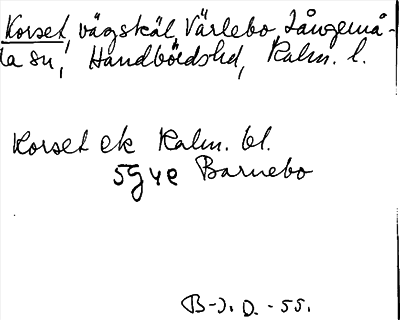 Korset, vägskäl, Värlebo, Långemå-
la sn, Handbördshd, Kalm. l.
Korset ek Kalm. bl.
5g4e Barnebo
B-J. D. -55.